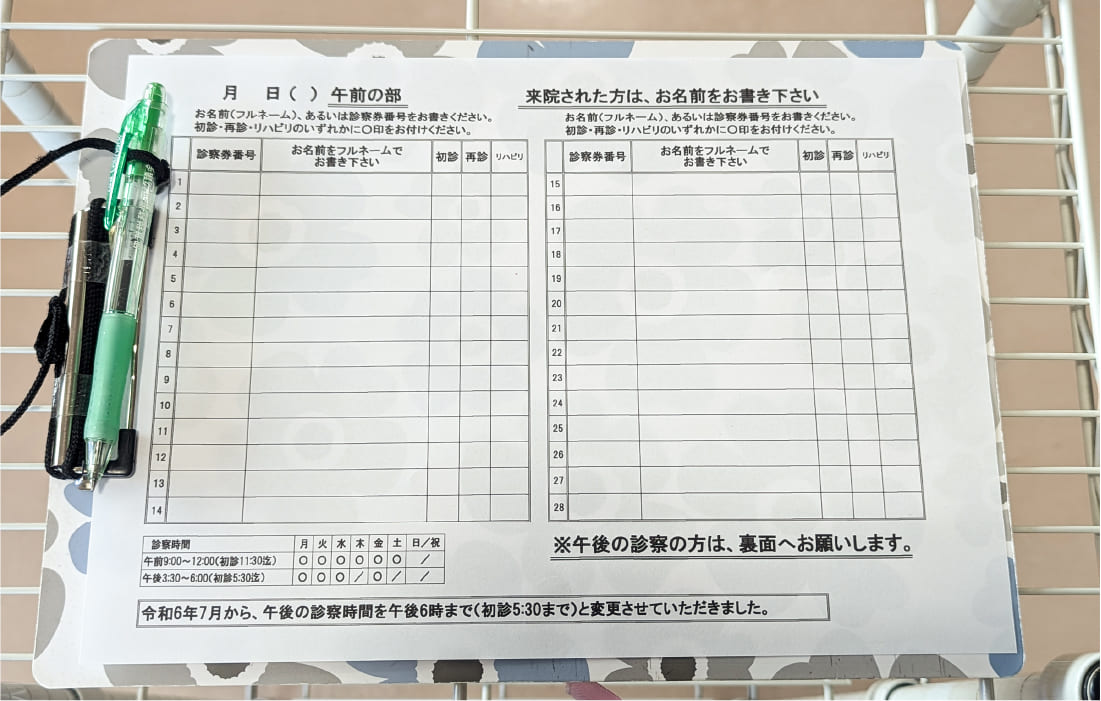 月　日（　）午前の部
お名前（フルネーム）、あるいは診察券番号をお書きください。
初診・再診・リハビリのいずれかに〇印をお付けください。
診察券番号 お名前をフルネームで
お書き下さい 初診 再診 リハビリ
1
2
3
4
5
6
7
8
9
10
11
12
13
14
来院された方は、お名前をお書き下さい
お名前（フルネーム）、あるいは診察券番号をお書きください。
初診・再診・リハビリのいずれかに〇印をお付けください。
診察券番号 お名前をフルネームで
お書き下さい 初診 再診 リハビリ
15
16
17
18
19
20
21
22
23
24
25
26
27
28
診察時間 月 火 水 木 金 土 日／祝
午前9:00～12:00（初診11:30迄） 〇 〇 〇 〇 〇 〇 ／
午後3:30～6:00（初診5:30迄） 〇 〇 〇 ／ 〇 ／ ／
※午後の診察の方は、裏面へお願いします。
令和6年7月から、午後の診察時間を午後6時まで（初診5:30まで）と変更させていただきました。